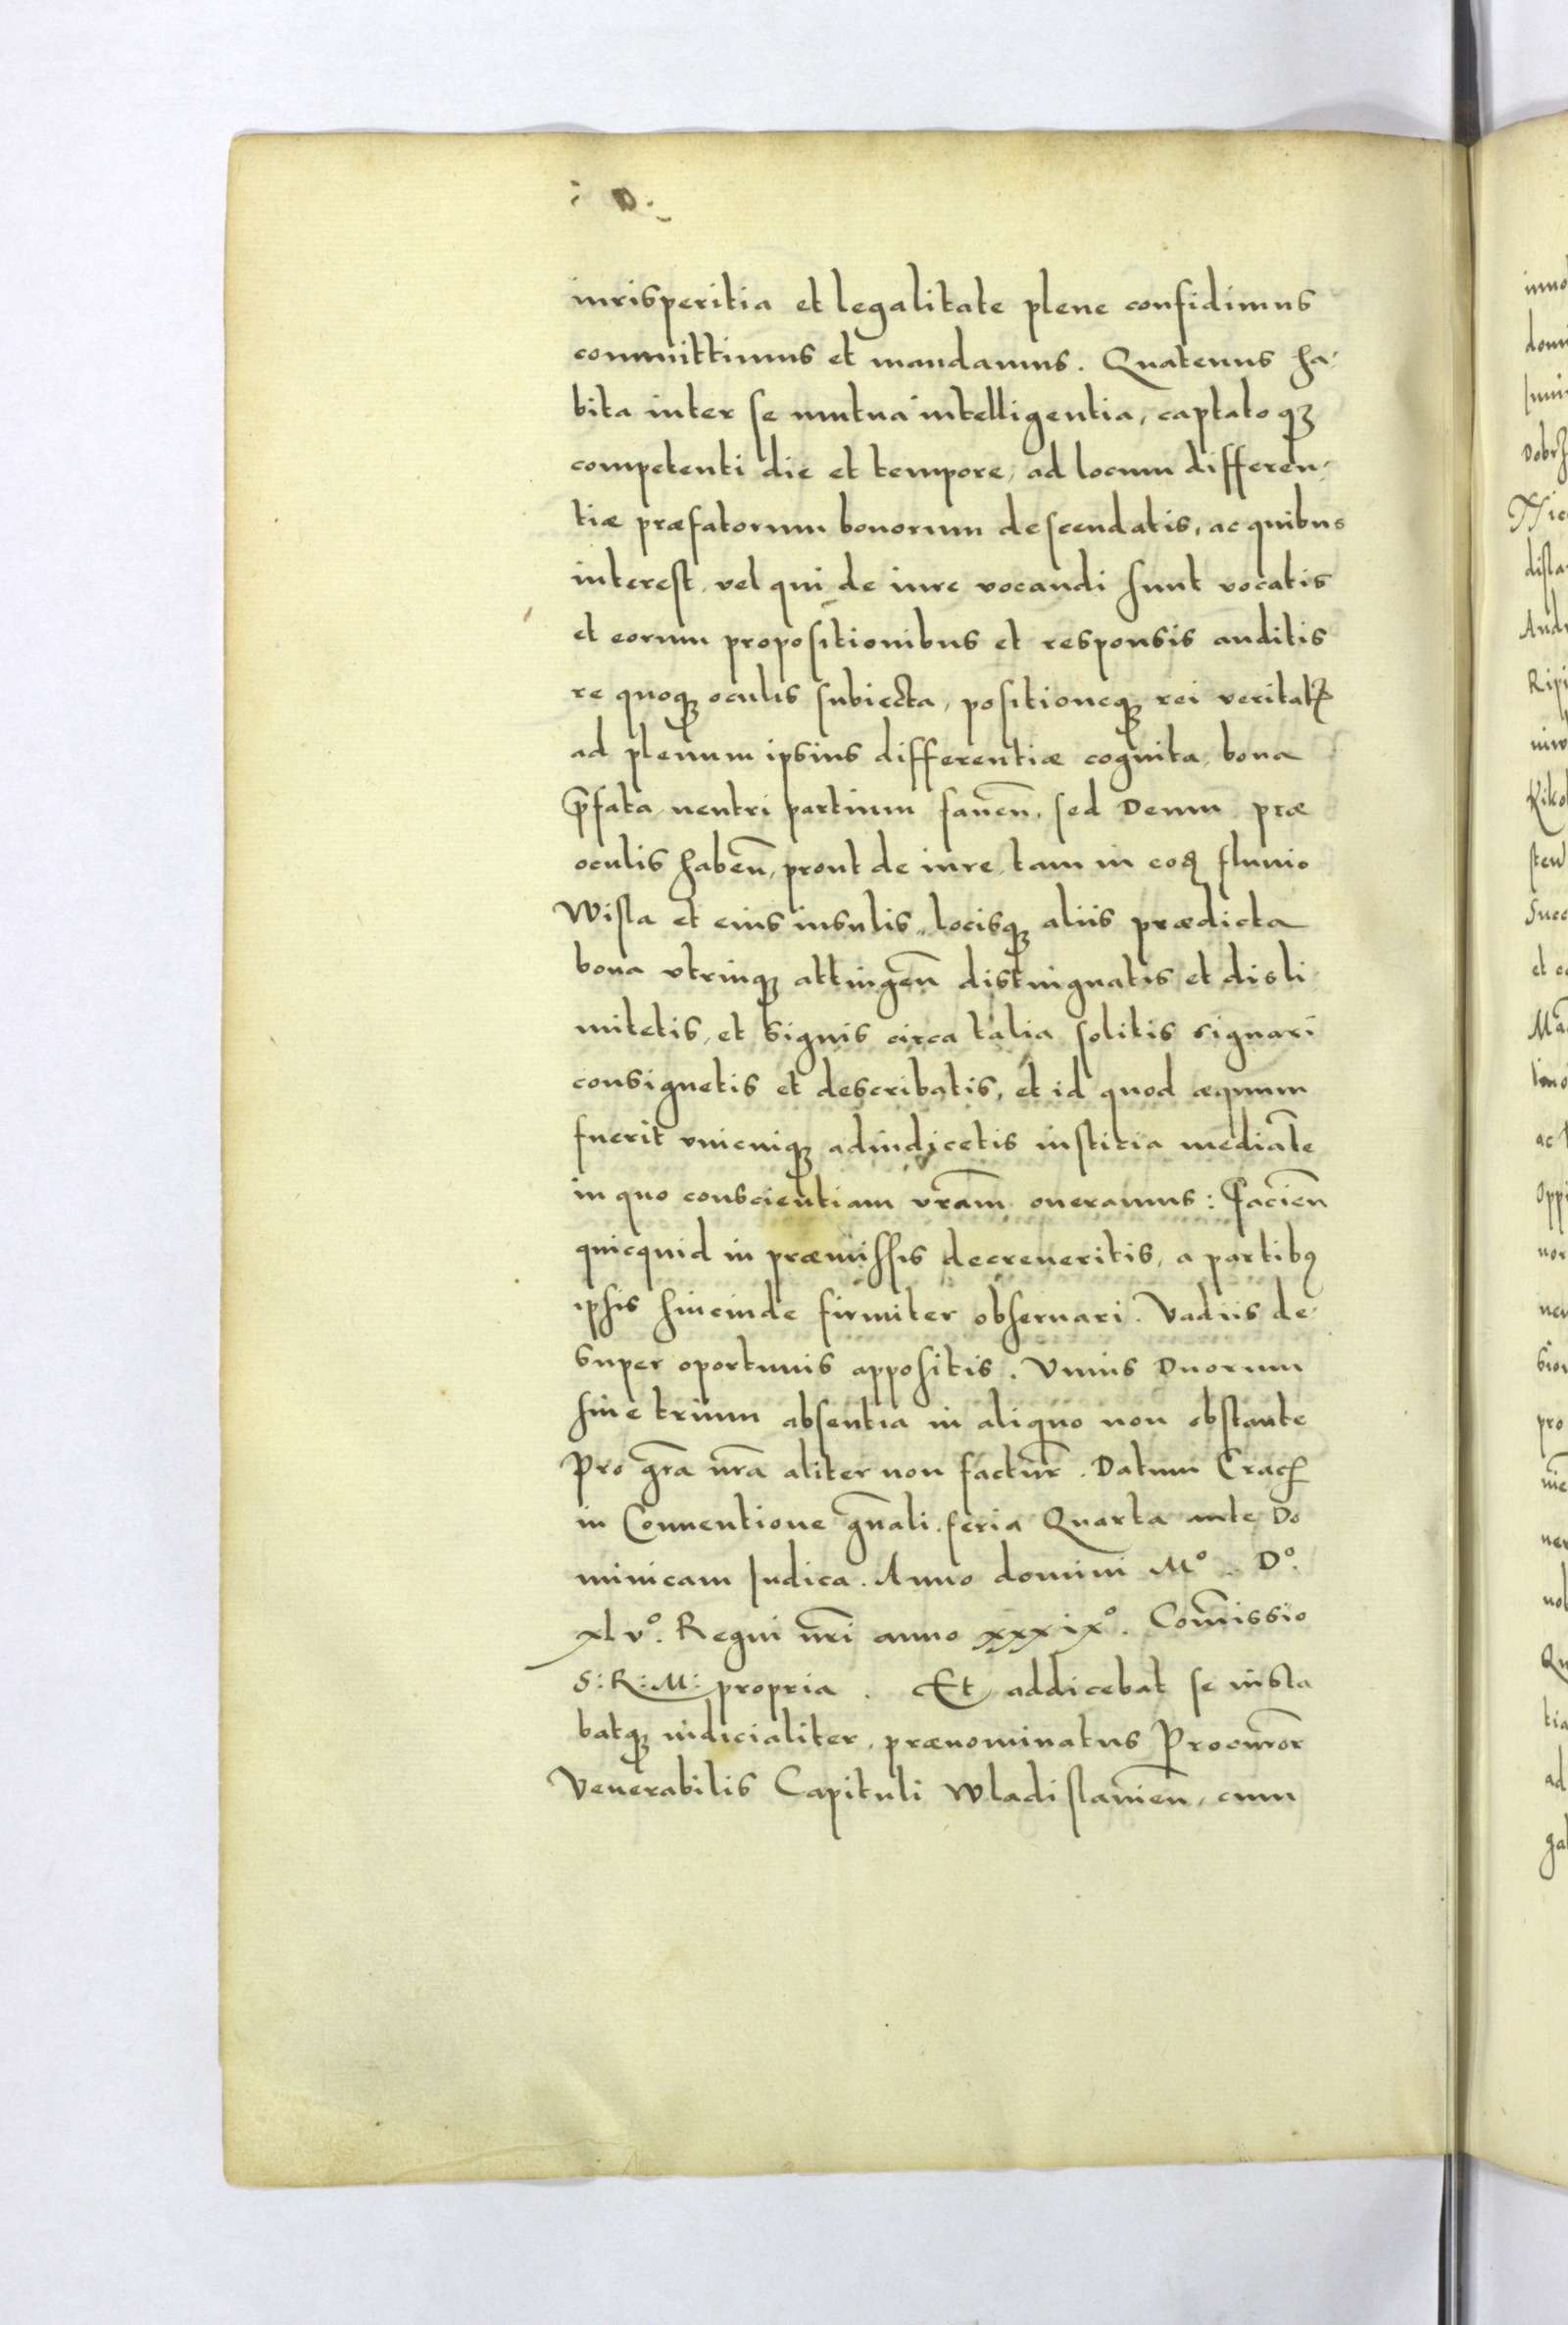 iurisperitia et legalitate plene confidimus
committimus et mandamus. Quatenus ha-
bita inter se mutua intelligentia, captato qꝫ
competenti die et tempore, ad locum differen-
tiæ præfatorum bonorum descendatis, ac quibus
interest, vel qui de iure vocandi sunt vocatis
et eorum propositionibus et responsis auditis
re quoqꝫ oculis subiecta, positioneqꝫ rei veritatꝭ
ad plenum ipsius differentiæ cognita, bona
p̄fata neutri partium faueñ, sed Deum præ
oculis habeñ, prout de iure, tam in eoꝺ fluuio
Wisla et eius insulis, locisqꝫ aliis prædicta
bona vtrinqꝫ attingeñ distinguatis et disli
mitetis, et signis circa talia solitis signari
consignetis et describatis, et id quod æquum
fuerit vnicuiqꝫ adiudicetis iustitia mediāte
in quo conscientiam vr̄am oneramus: Facieñ
quicquid in præmissis decreueritis, a partibꝰ
ipsis hincinde firmiter obseruari. Vadiis de-
super oportunis appositis. Vnius Duorum
siue trium absentia in aliquo non obstante
Pro gr̄a nr̄a aliter non factur̄. Datum Cracꝭ
in Conuentione gn̄ali. feria Quarta ante Do
minicam Iudica. Anno domini Mº. Dº.
xlvº. Regni nr̄i anno xxxixº. Com̄issio
S: R: M: propria. Et addicebat se insta
batqꝫ iudicialiter, prænominatus Procur̄or
Venerabilis Capituli Wladislauieñ, cum